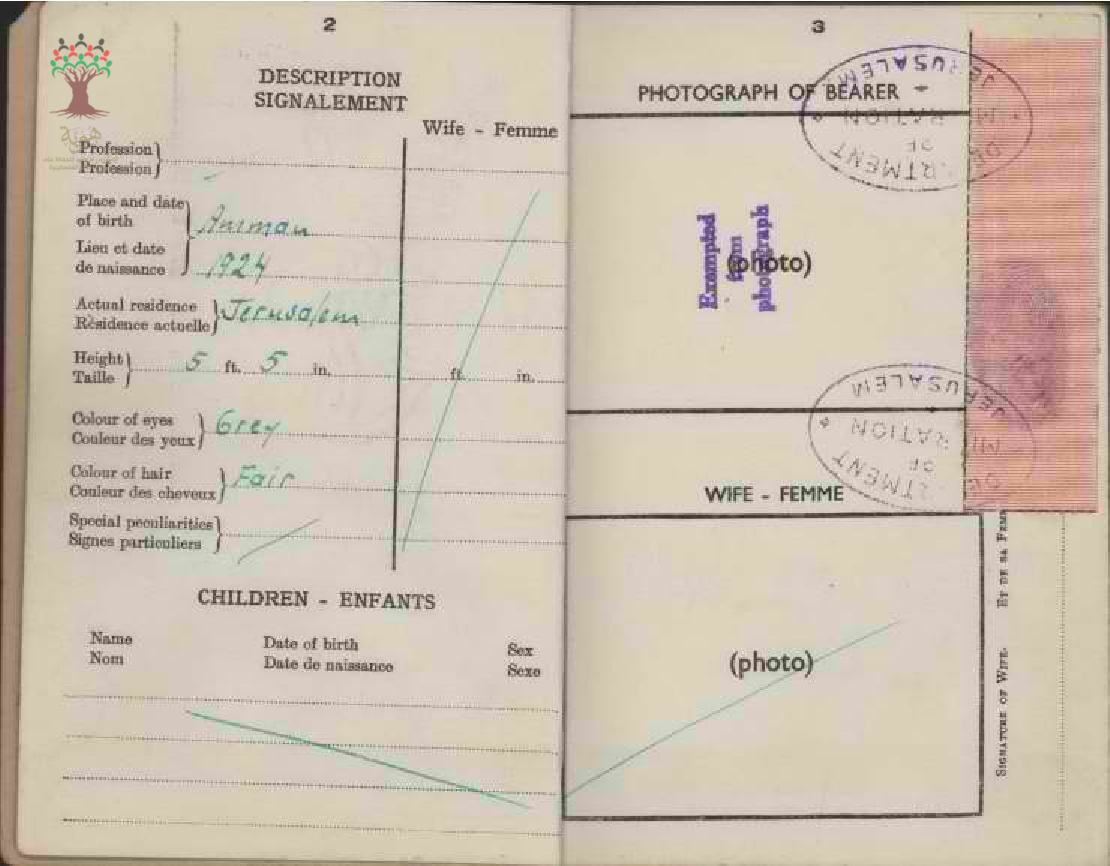 2
DESCRIPTION
SIGNALEMENT
Wife - Femme
Profession
Profession
Place and date
of birth
Lieu et date
de naissance
Amman
1924
Actual residence
Résidence actuelle
Jerusalem
Height
Taille
5 ft. 5 in.
ft. in.
Colour of eyes
Couleur des yeux
Grey
Colour of hair
Couleur des cheveux
Fair
Special peculiarities
Signes particuliers
CHILDREN - ENFANTS
Name
Nom
Date of birth
Date de naissance
Sex
Sexe
3
PHOTOGRAPH OF BEARER
Exempted
from
photograph
(photo)
WIFE - FEMME
(photo)
SIGNATURE OF WIFE. ET DE SA FEMME
JERUSALEM
RATION
OF
DE RTMENT
JERUSALEM
MI RATION
OF
DE RTMENT